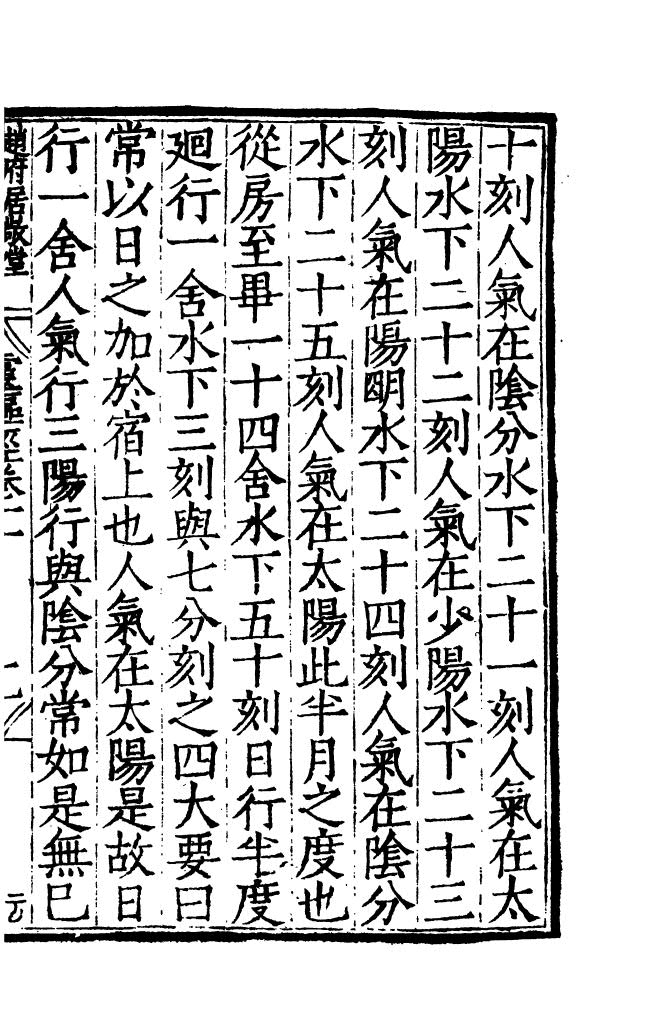 十刻人氣在陰分水下二十一刻人氣在太
陽水下二十二刻人氣在少陽水下二十三
刻人氣在陽明水下二十四刻人氣在陰分
水下二十五刻人氣在太陽此半月之度也
從房至畢一十四舍水下五十刻日行半度
廻行一舍水下三刻與七分刻之四大要曰
常以日之加於宿上也人氣在太陽是故日
行一舍人氣行三陽行與陰分常如是無已
趙府居敬堂